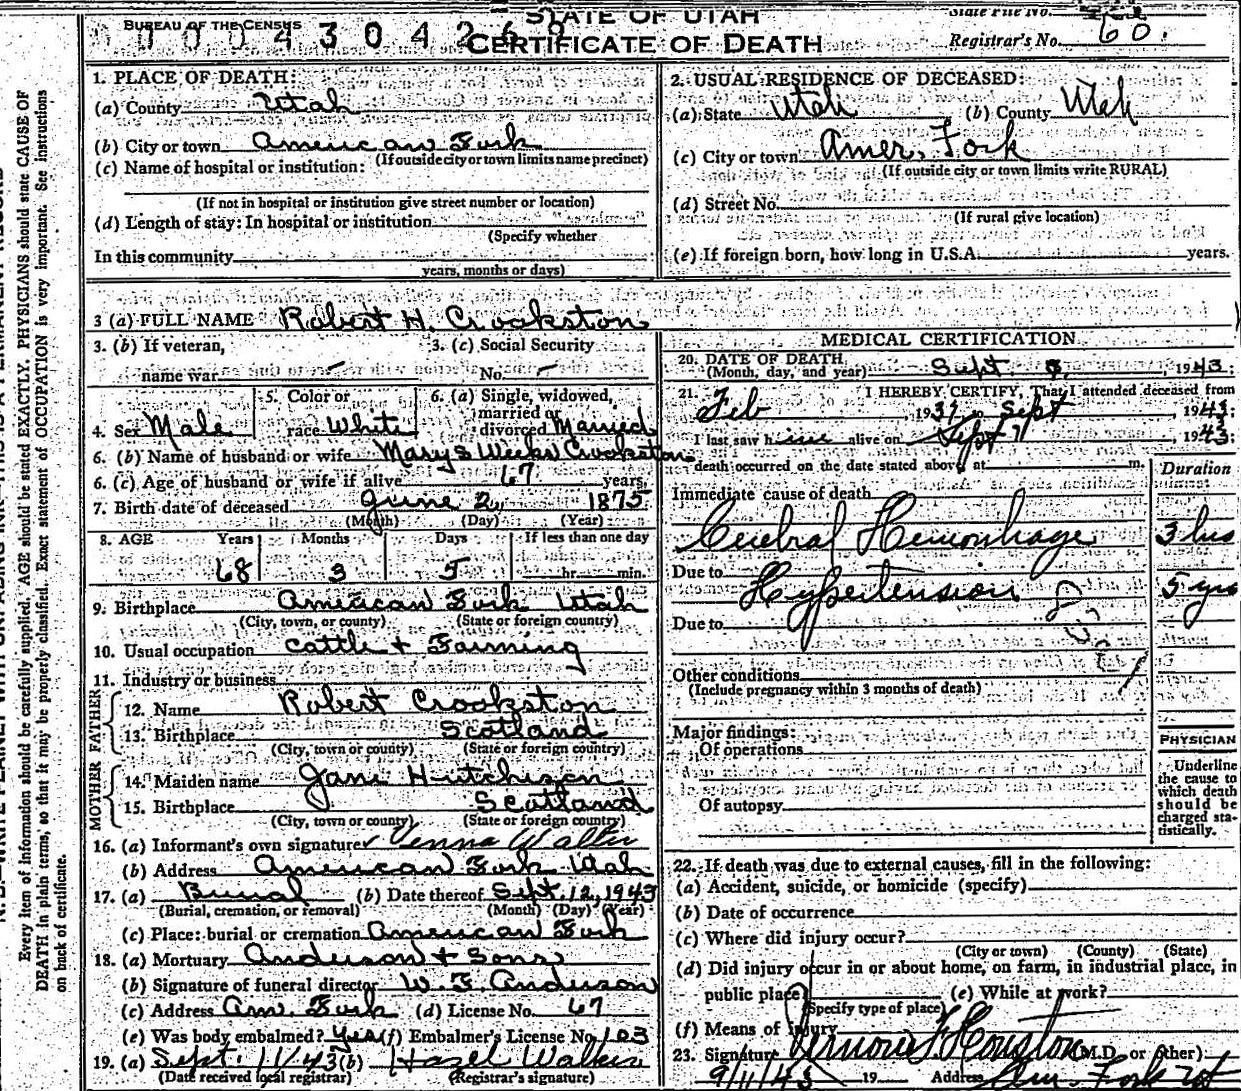 BUREAU OF THE CENSUS
STATE OF UTAH
CERTIFICATE OF DEATH
State File No.
Registrar's No. 60
1. PLACE OF DEATH:
(a) County Utah
(b) City or town American Fork
(If outside city or town limits name precinct)
(c) Name of hospital or institution:
(If not in hospital or institution give street number or location)
(d) Length of stay: In hospital or institution
(Specify whether
In this community
years, months or days)
2. USUAL RESIDENCE OF DECEASED:
(a) State Utah (b) County Utah
(c) City or town Amer. Fork
(If outside city or town limits write RURAL)
(d) Street No.
(If rural give location)
(e) If foreign born, how long in U.S.A. years.
3 (a) FULL NAME Robert H. Crookston
3. (b) If veteran, 3. (c) Social Security
name war — No. —
4. Sex Male
5. Color or race White
6. (a) Single, widowed, married or divorced Married
6. (b) Name of husband or wife Mary S Weeks Crookston
6. (c) Age of husband or wife if alive 67 years,
7. Birth date of deceased June 2, 1875
(Month) (Day) (Year)
8. AGE Years Months Days If less than one day
68 3 5 hr. min.
9. Birthplace American Fork Utah
(City, town, or county) (State or foreign country)
10. Usual occupation Cattle + Farming
11. Industry or business
FATHER
12. Name Robert Crookston
13. Birthplace Scotland
(City, town or county) (State or foreign country)
MOTHER
14. Maiden name Jane Hutchison
15. Birthplace Scotland
(City, town or county) (State or foreign country)
16. (a) Informant's own signature Venna
(b) Address American Fork Utah
17. (a) Burial (b) Date thereof Sept. 12, 1943
(Burial, cremation, or removal) (Month) (Day) (Year)
(c) Place: burial or cremation American Fork
18. (a) Mortuary Anderson + Sons
(b) Signature of funeral director W. F. Anderson
(c) Address Am. Fork (d) License No. 67
(e) Was body embalmed? Yes (f) Embalmer's License No. 103
19. (a) Sept. 11/43 (b) Hazel Walker
(Date received local registrar) (Registrar's signature)
MEDICAL CERTIFICATION
20. DATE OF DEATH
(Month, day, and year) Sept. 1943.
21. I HEREBY CERTIFY, That I attended deceased from
Feb , 19 to Sept , 1943;
I last saw him alive on Sept 7 , 1943;
death occurred on the date stated above, at m.
Duration
Immediate cause of death
Cerebral Hemorrhage 3 hrs
Due to Hypertension 5 yrs
Due to
Other conditions
(Include pregnancy within 3 months of death)
Major findings:
Of operations
Of autopsy
PHYSICIAN
Underline
the cause to
which death
should be
charged sta-
tistically.
22. If death was due to external causes, fill in the following:
(a) Accident, suicide, or homicide (specify)
(b) Date of occurrence
(c) Where did injury occur?
(City or town) (County) (State)
(d) Did injury occur in or about home, on farm, in industrial place, in
public place? (e) While at work?
(Specify type of place)
(f) Means of injury
23. Signature Vernon F Houston (M.D. or other)
9/11/43 19 Address Am Fork Ut
Every item of information should be carefully supplied. AGE should be stated EXACTLY. PHYSICIANS should state CAUSE OF
DEATH in plain terms, so that it may be properly classified. Exact statement of OCCUPATION is very important. See instructions
on back of certificate.